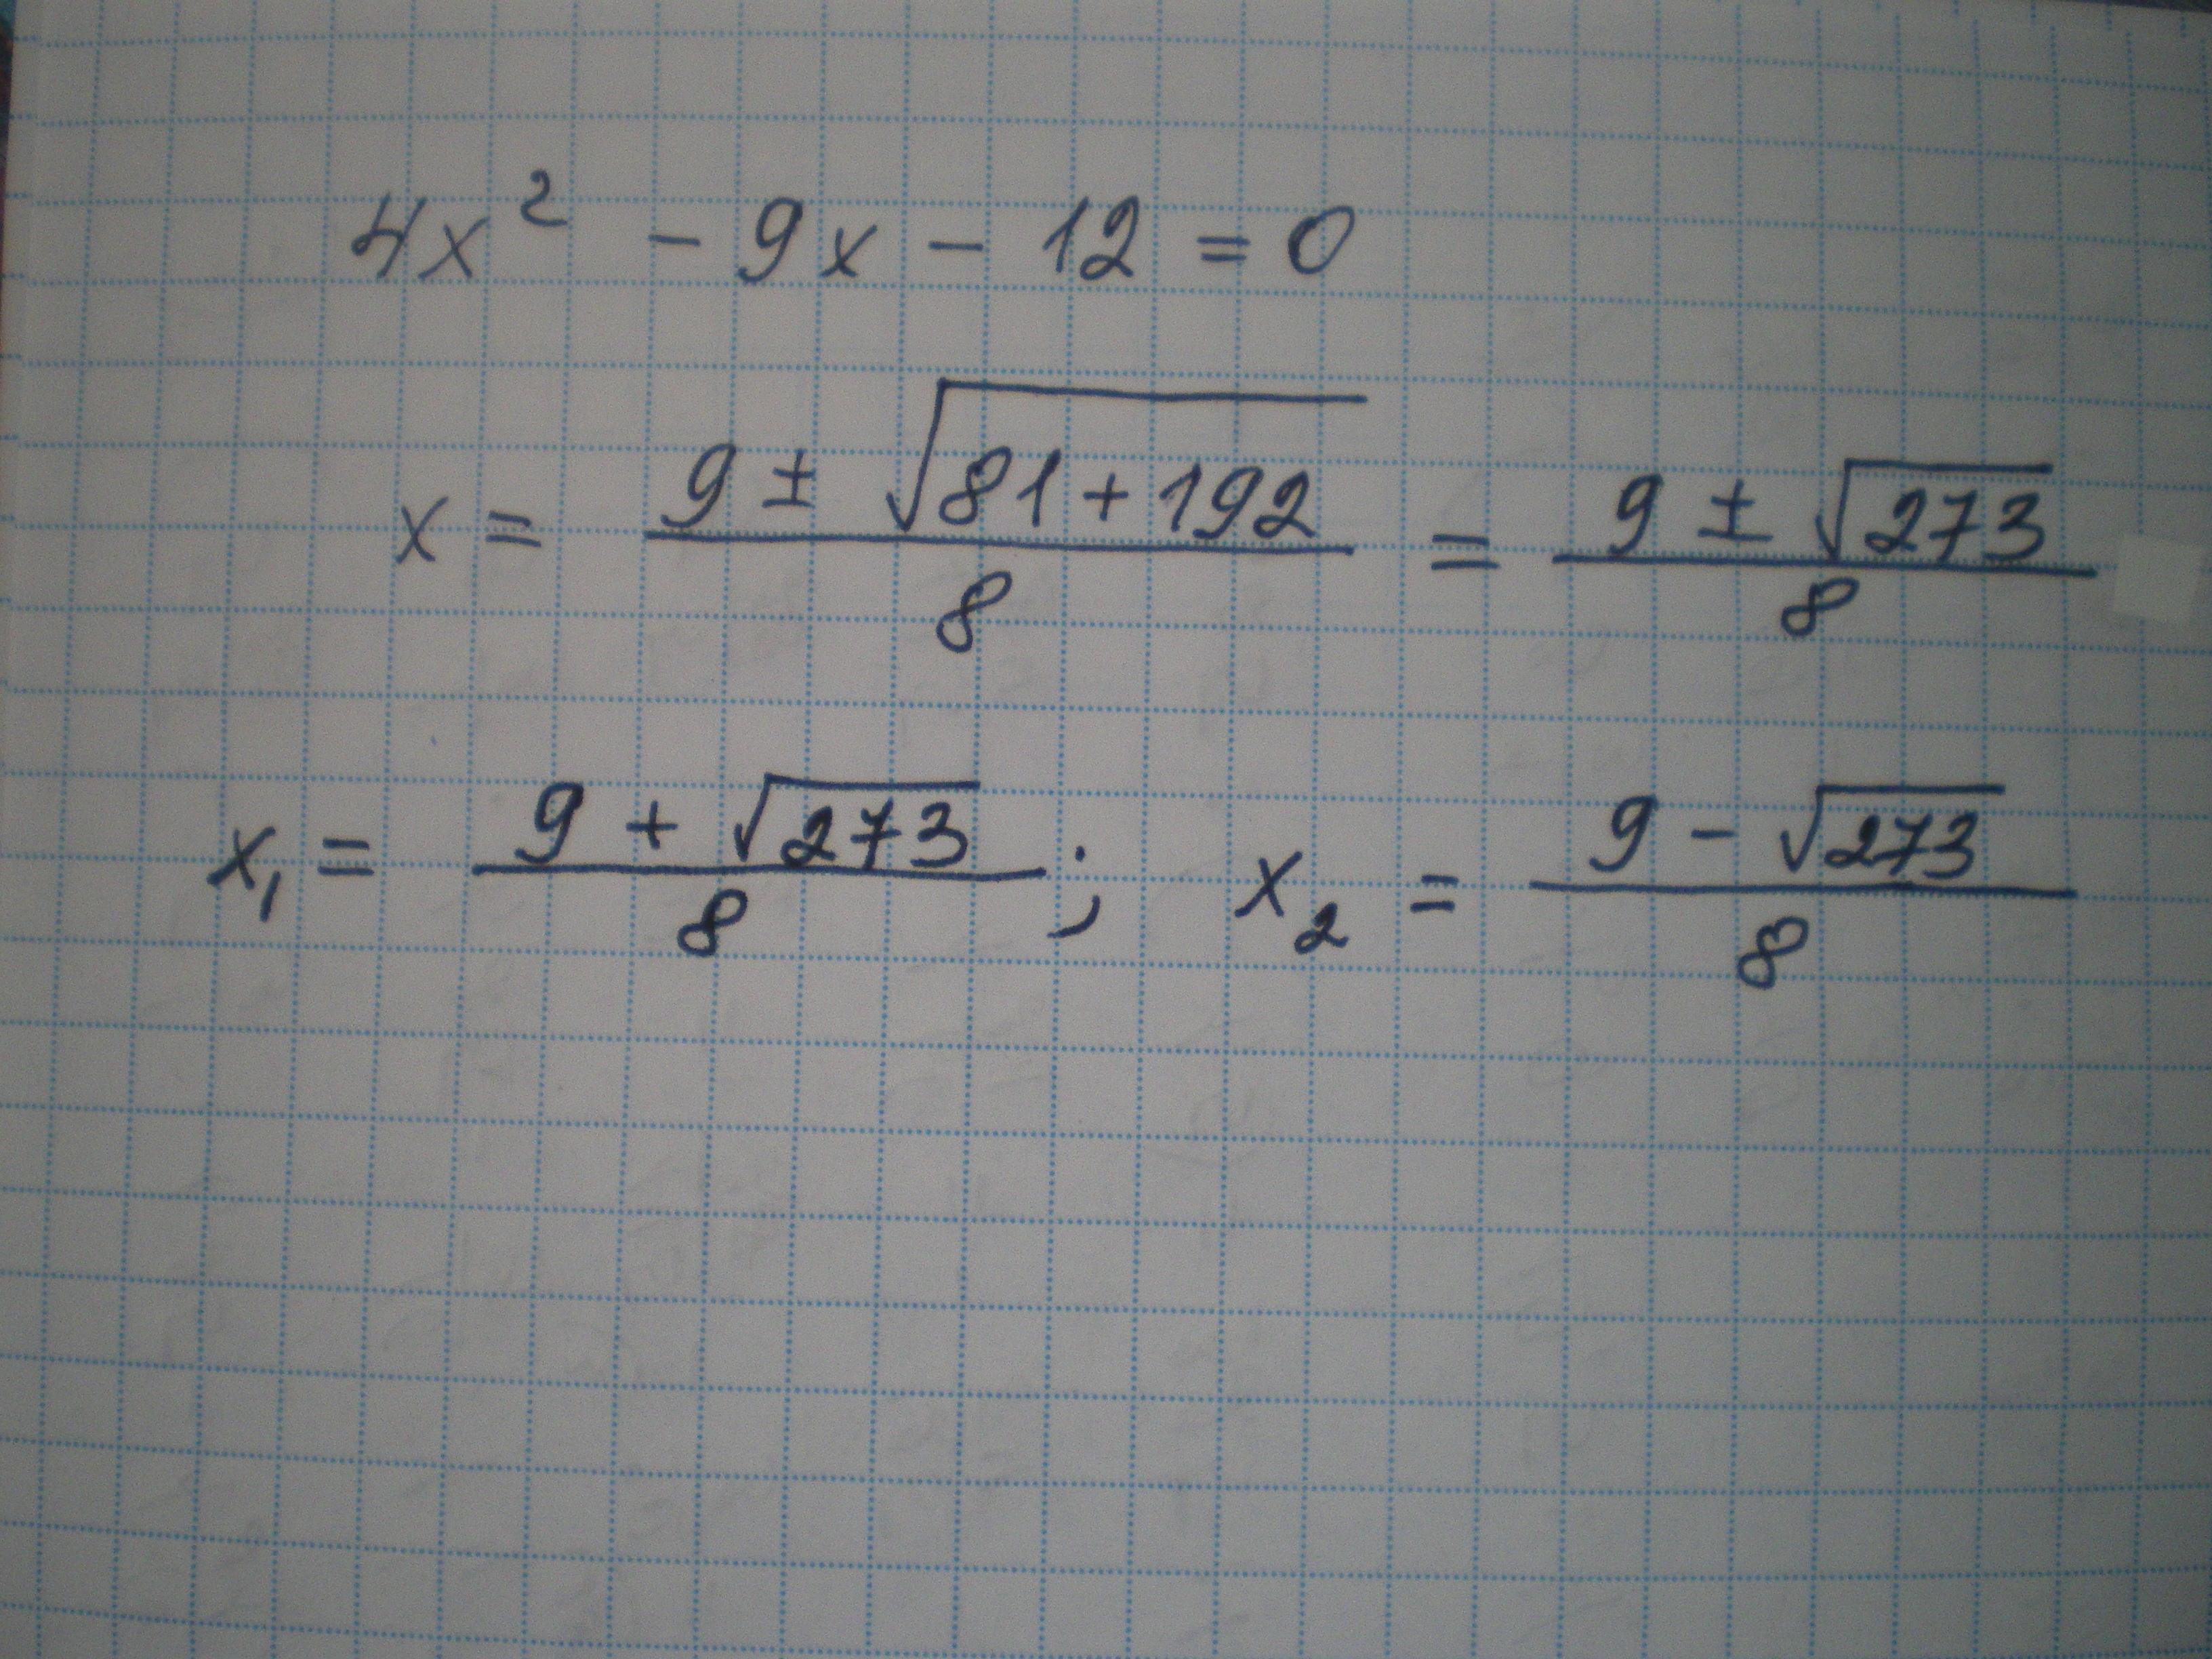 4x² - 9x - 12 = 0
x = (9 ± √(81 + 192))/8 = (9 ± √273)/8
x₁ = (9 + √273)/8 ; x₂ = (9 - √273)/8